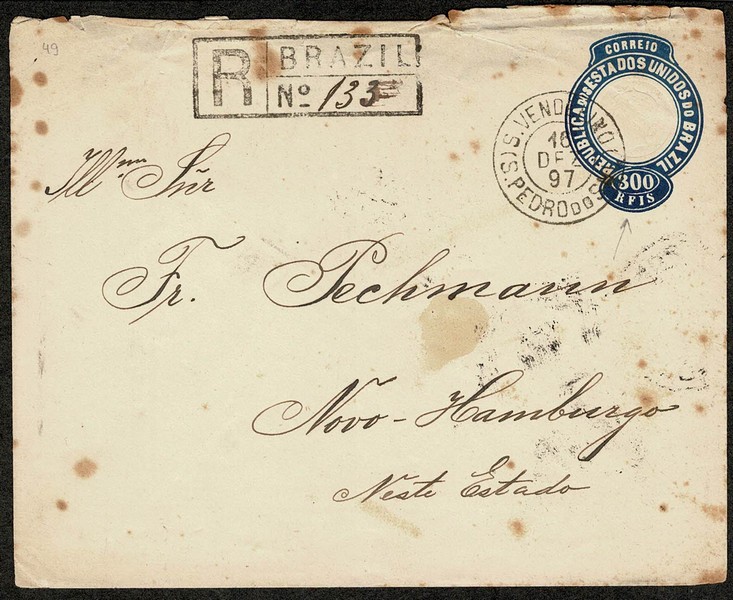 49
R BRAZIL
Nº 133
CORREIO
REPUBLICA DOS ESTADOS UNIDOS DO BRAZIL
300
REIS
S. VENDELINO
16
DEZ
97
(S. PEDRO DO S
Illmo Sñr
Fr. Pechmann
Novo-Hamburgo
Neste Estado